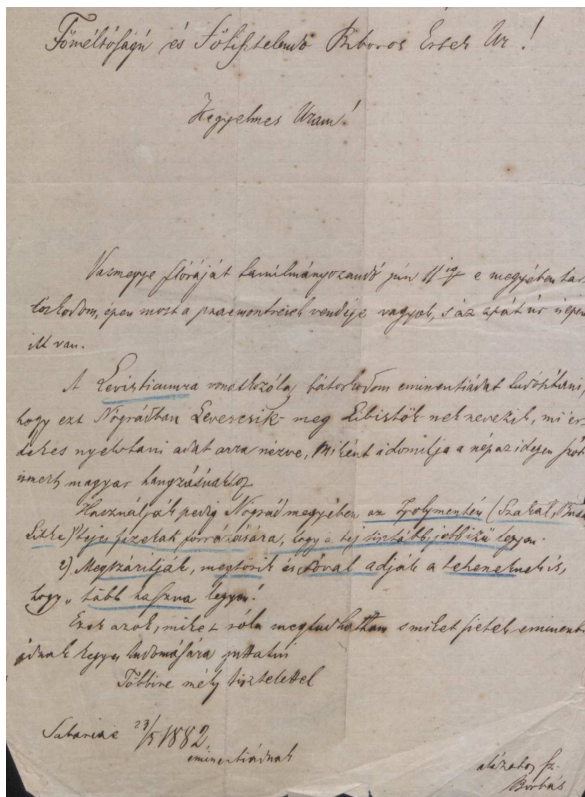 Főméltóságú és Főtisztelendő Bíboros Érsek Úr!
Kegyelmes Uram!
Vasmegye flóráját tanulmányozandó jun 11 ig e megyében tar-
tózkodom, épen most a praemontreiek vendége vagyok, s az apát úr is épen
itt van.
A Levisticumra vonatkozólag bátorkodom eminentiádat tudósítani,
hogy ezt Nógrádban Levescsik meg Libistók nek nevezik, mi ér-
dekes nyelvtani adat arra nézve, miként idomítja a nép az idegen szót
ismert magyar hangzásukhoz
Használják pedig Nógrádmegyében az Ipolymentén (Szakal,
tejes fizekak forrázására, hogy a tej tisztább, jobb izű legyen.
2) Megszárítják, megtörik és sóval adják a teheneknek is,
hogy "több haszna legyen".
Ezek azok, miket róla megtudhattam s miket sietek eminenti-
ádnak kegyes tudomására juttatni
Többire mély tisztelettel
Sabariae 23/5 1882
eminentiádnak
alázatos sz.
Borbás